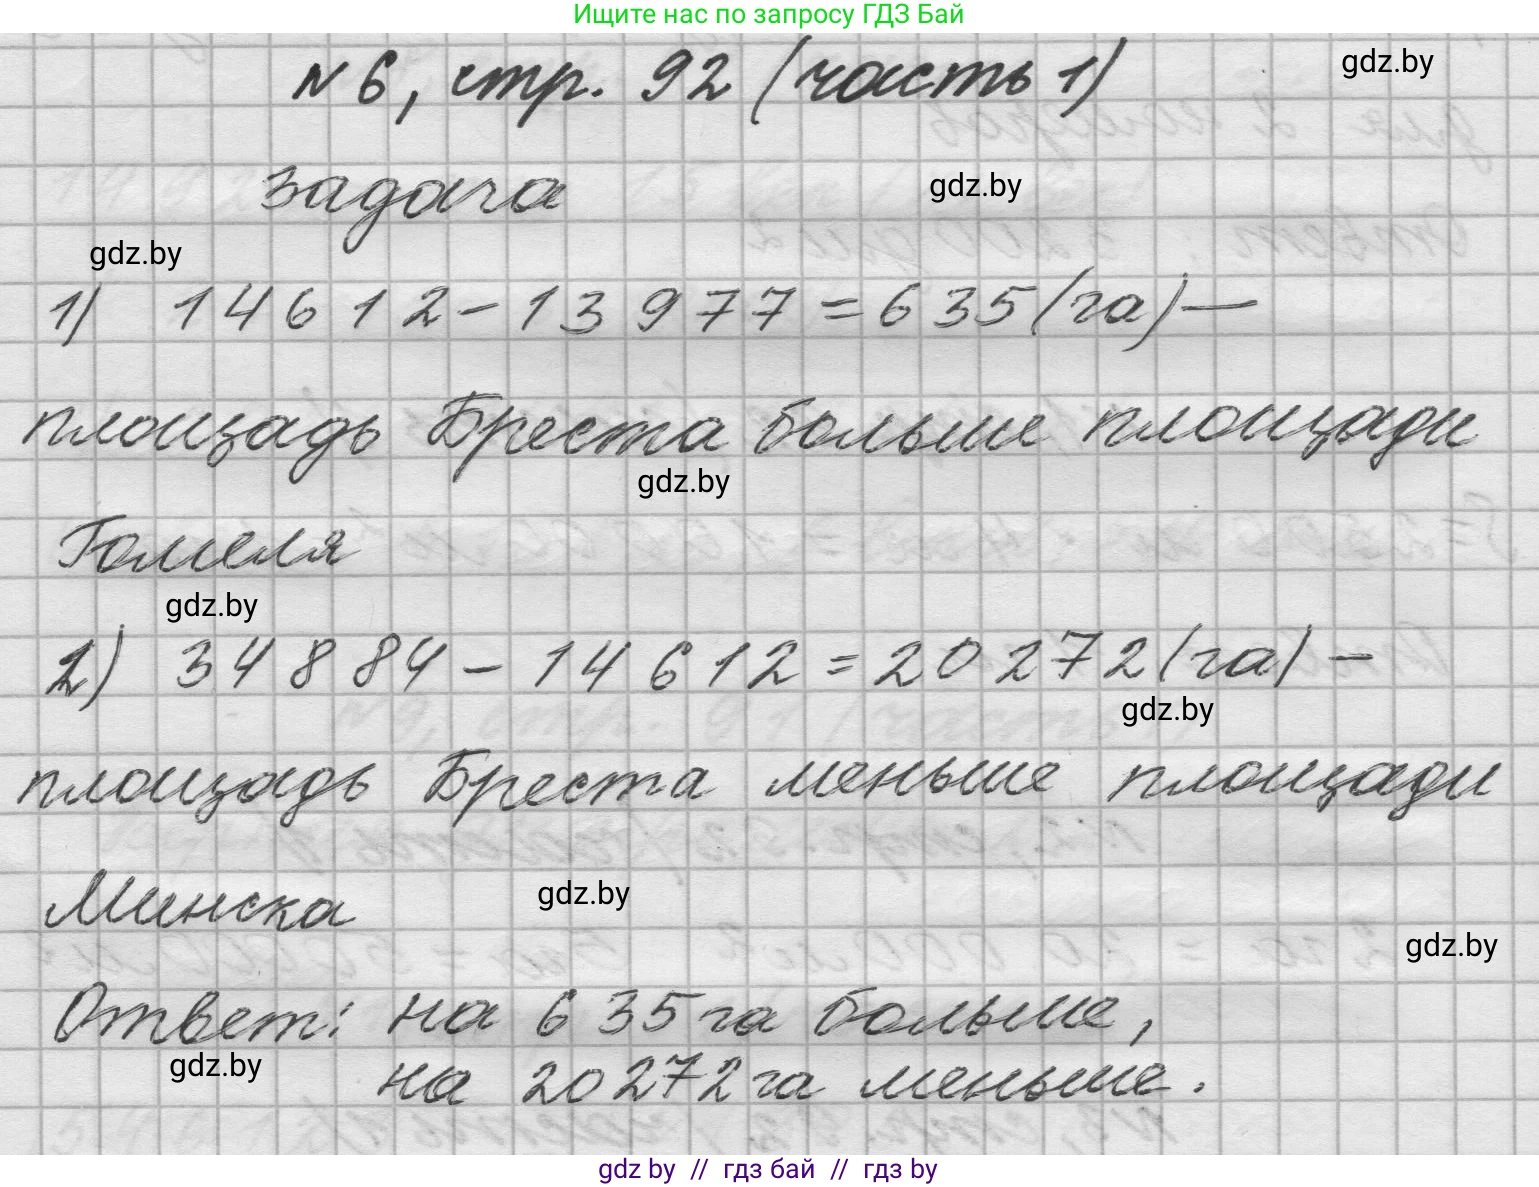 Ищите нас по запросу ГДЗ Бай
№ 6, стр. 92 (часть 1)
gdz.by
задача
gdz.by
gdz.by
1) 14612 - 13977 = 635 (га) —
площадь Бреста больше площади
gdz.by
Гомеля
gdz.by
2) 34884 - 14612 = 20272 (га) —
gdz.by
площадь Бреста меньше площади
Минска
gdz.by
gdz.by
Ответ: на 635 га больше,
gdz.by
на 20272 га меньше.
gdz by // гдз бай // гдз by